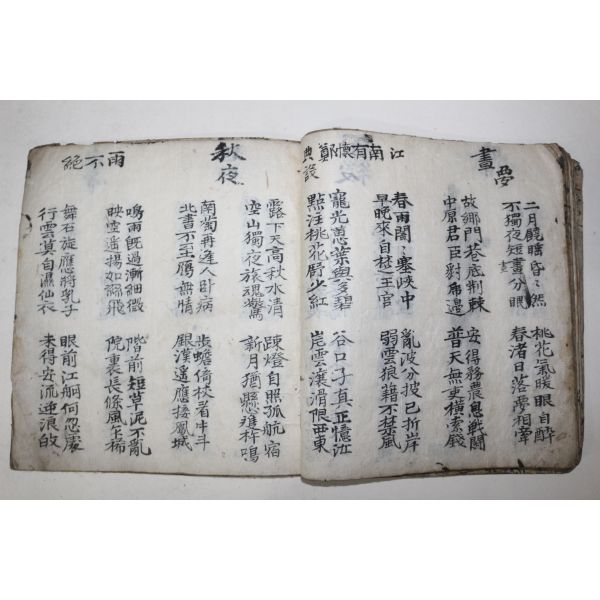 晝夢
二月饒睡昏〻然
不獨夜短晝分眠
桃花氣暖眼自醉
春渚日落夢相牽
故鄉門巷底荊棘
中原君臣虎邊
安得務農息戰鬪
普天無吏橫索錢
江南有懷鄭典設
春雨闇〻塞峽中
早晚來自楚王宮
亂波分披已折岸
弱雲狼藉不禁風
寵光蕙葉與多碧
點注桃花舒少紅
谷口子真正憶汝
岸雲瀼滑限西東
秋夜
露下天高秋水清
空山獨夜旅魂驚
疎燈自照孤帆宿
新月猶懸雙杵鳴
南菊再逢人臥病
北書不至鴈無情
步蟾倚杖看牛斗
銀漢遙應接鳳城
雨不絕
鳴雨旣過漸細微
映空搖揚如絲飛
階前短草泥不亂
院裏長條風乍稀
舞石旋應將乳子
行雲莫自濕仙衣
眼前江舸何忽促
未得安流逆浪敀